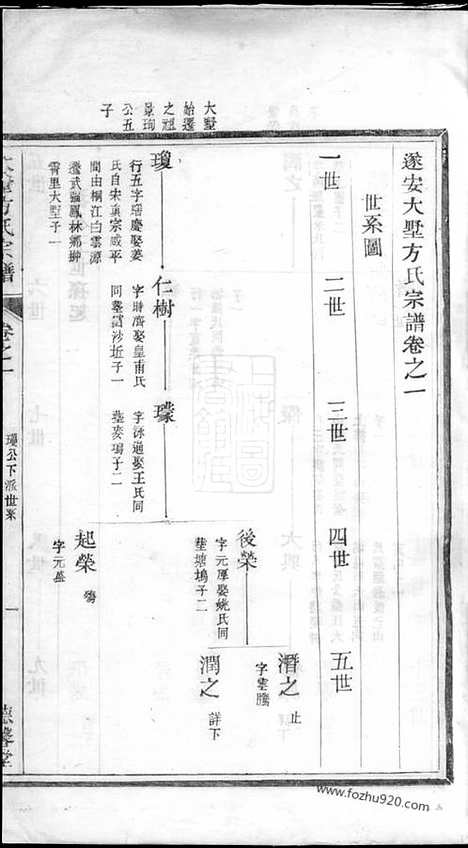 遂安大墅方氏宗譜卷之一
世系圖
一世
二世
三世
四世
五世
大墅
始遷
之祖
景珣
公五
子
瓊
行五字瑨慶娶姜
氏自宋眞宗咸平
間由桐江白雲源
遷武強鳳林鄉
霄里大墅子一
仁樹
字時濟娶皇甫氏
同塟富沙坵子一
瓈
字泳通娶王氏同
塟麥塢子二
後榮
字元厚娶姚氏同
塟塘塢子二
起榮
字元盛
潛之
止
字雲騰
潤之
詳下
方氏宗譜
卷之一
瓊公下派世系
一
堂
www.fozhu920.com